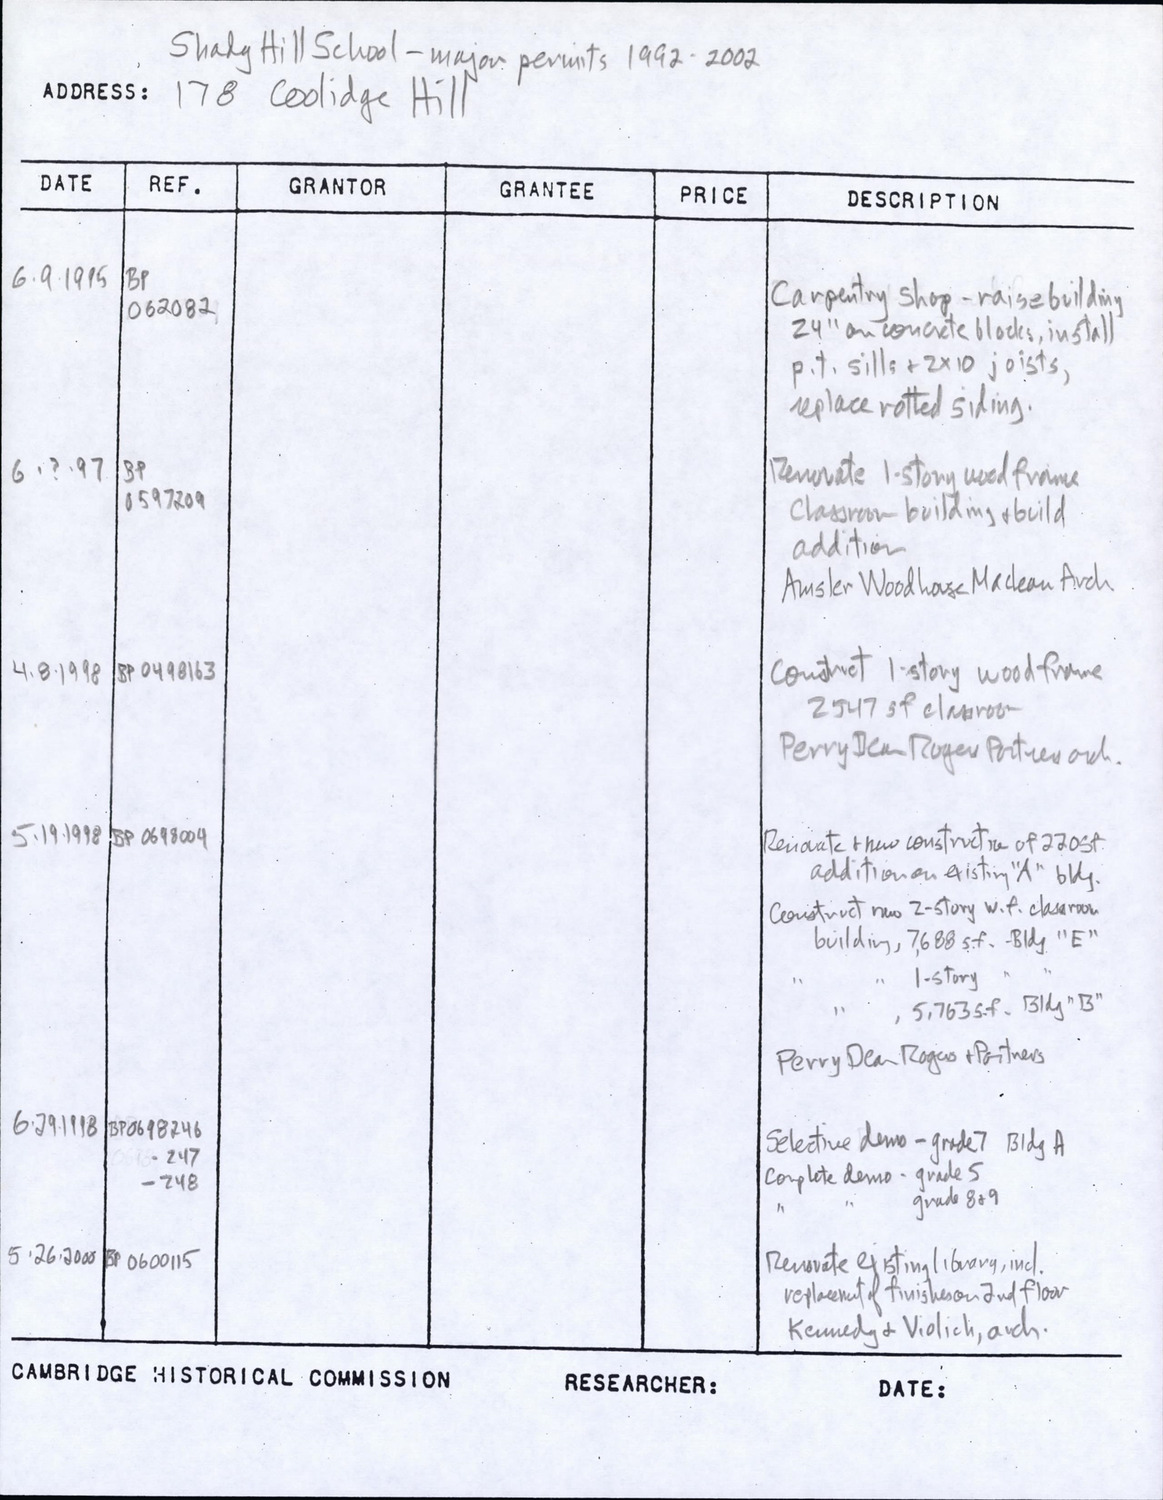 Shady Hill School - major permits 1992-2002
ADDRESS: 178 Coolidge Hill
DATE REF. GRANTOR GRANTEE PRICE DESCRIPTION
6.9.1995 BP
062082
Carpentry shop - raise building
24" on concrete blocks, install
p.t. sills + 2x10 joists,
replace rotted siding.
6.?.97 BP
0597209
Renovate 1-story wood frame
classroom building + build
addition
Amsler Woodhouse Maclean Arch
4.8.1998 BP 0498163
Construct 1-story wood frame
2547 sf classroom
Perry Dean Rogers Partners arch.
5.19.1998 BP 0698004
Renovate + new construction of 220 sf.
addition on existing "A" bldg.
Construct new 2-story w.f. classroom
building, 7,688 s.f. - Bldg "E"
" " 1-story " "
" , 5,763 s.f. Bldg "B"
Perry Dean Rogers + Partners
6.29.1998 BP0698246
- 247
- 248
Selective demo - grade 7 Bldg A
Complete demo - grade 5
" " grade 8+9
5.26.2000 BP 0600115
Renovate existing library, incl.
replacement of finishes on 2nd floor
Kennedy + Violich, arch.
CAMBRIDGE HISTORICAL COMMISSION RESEARCHER: DATE: